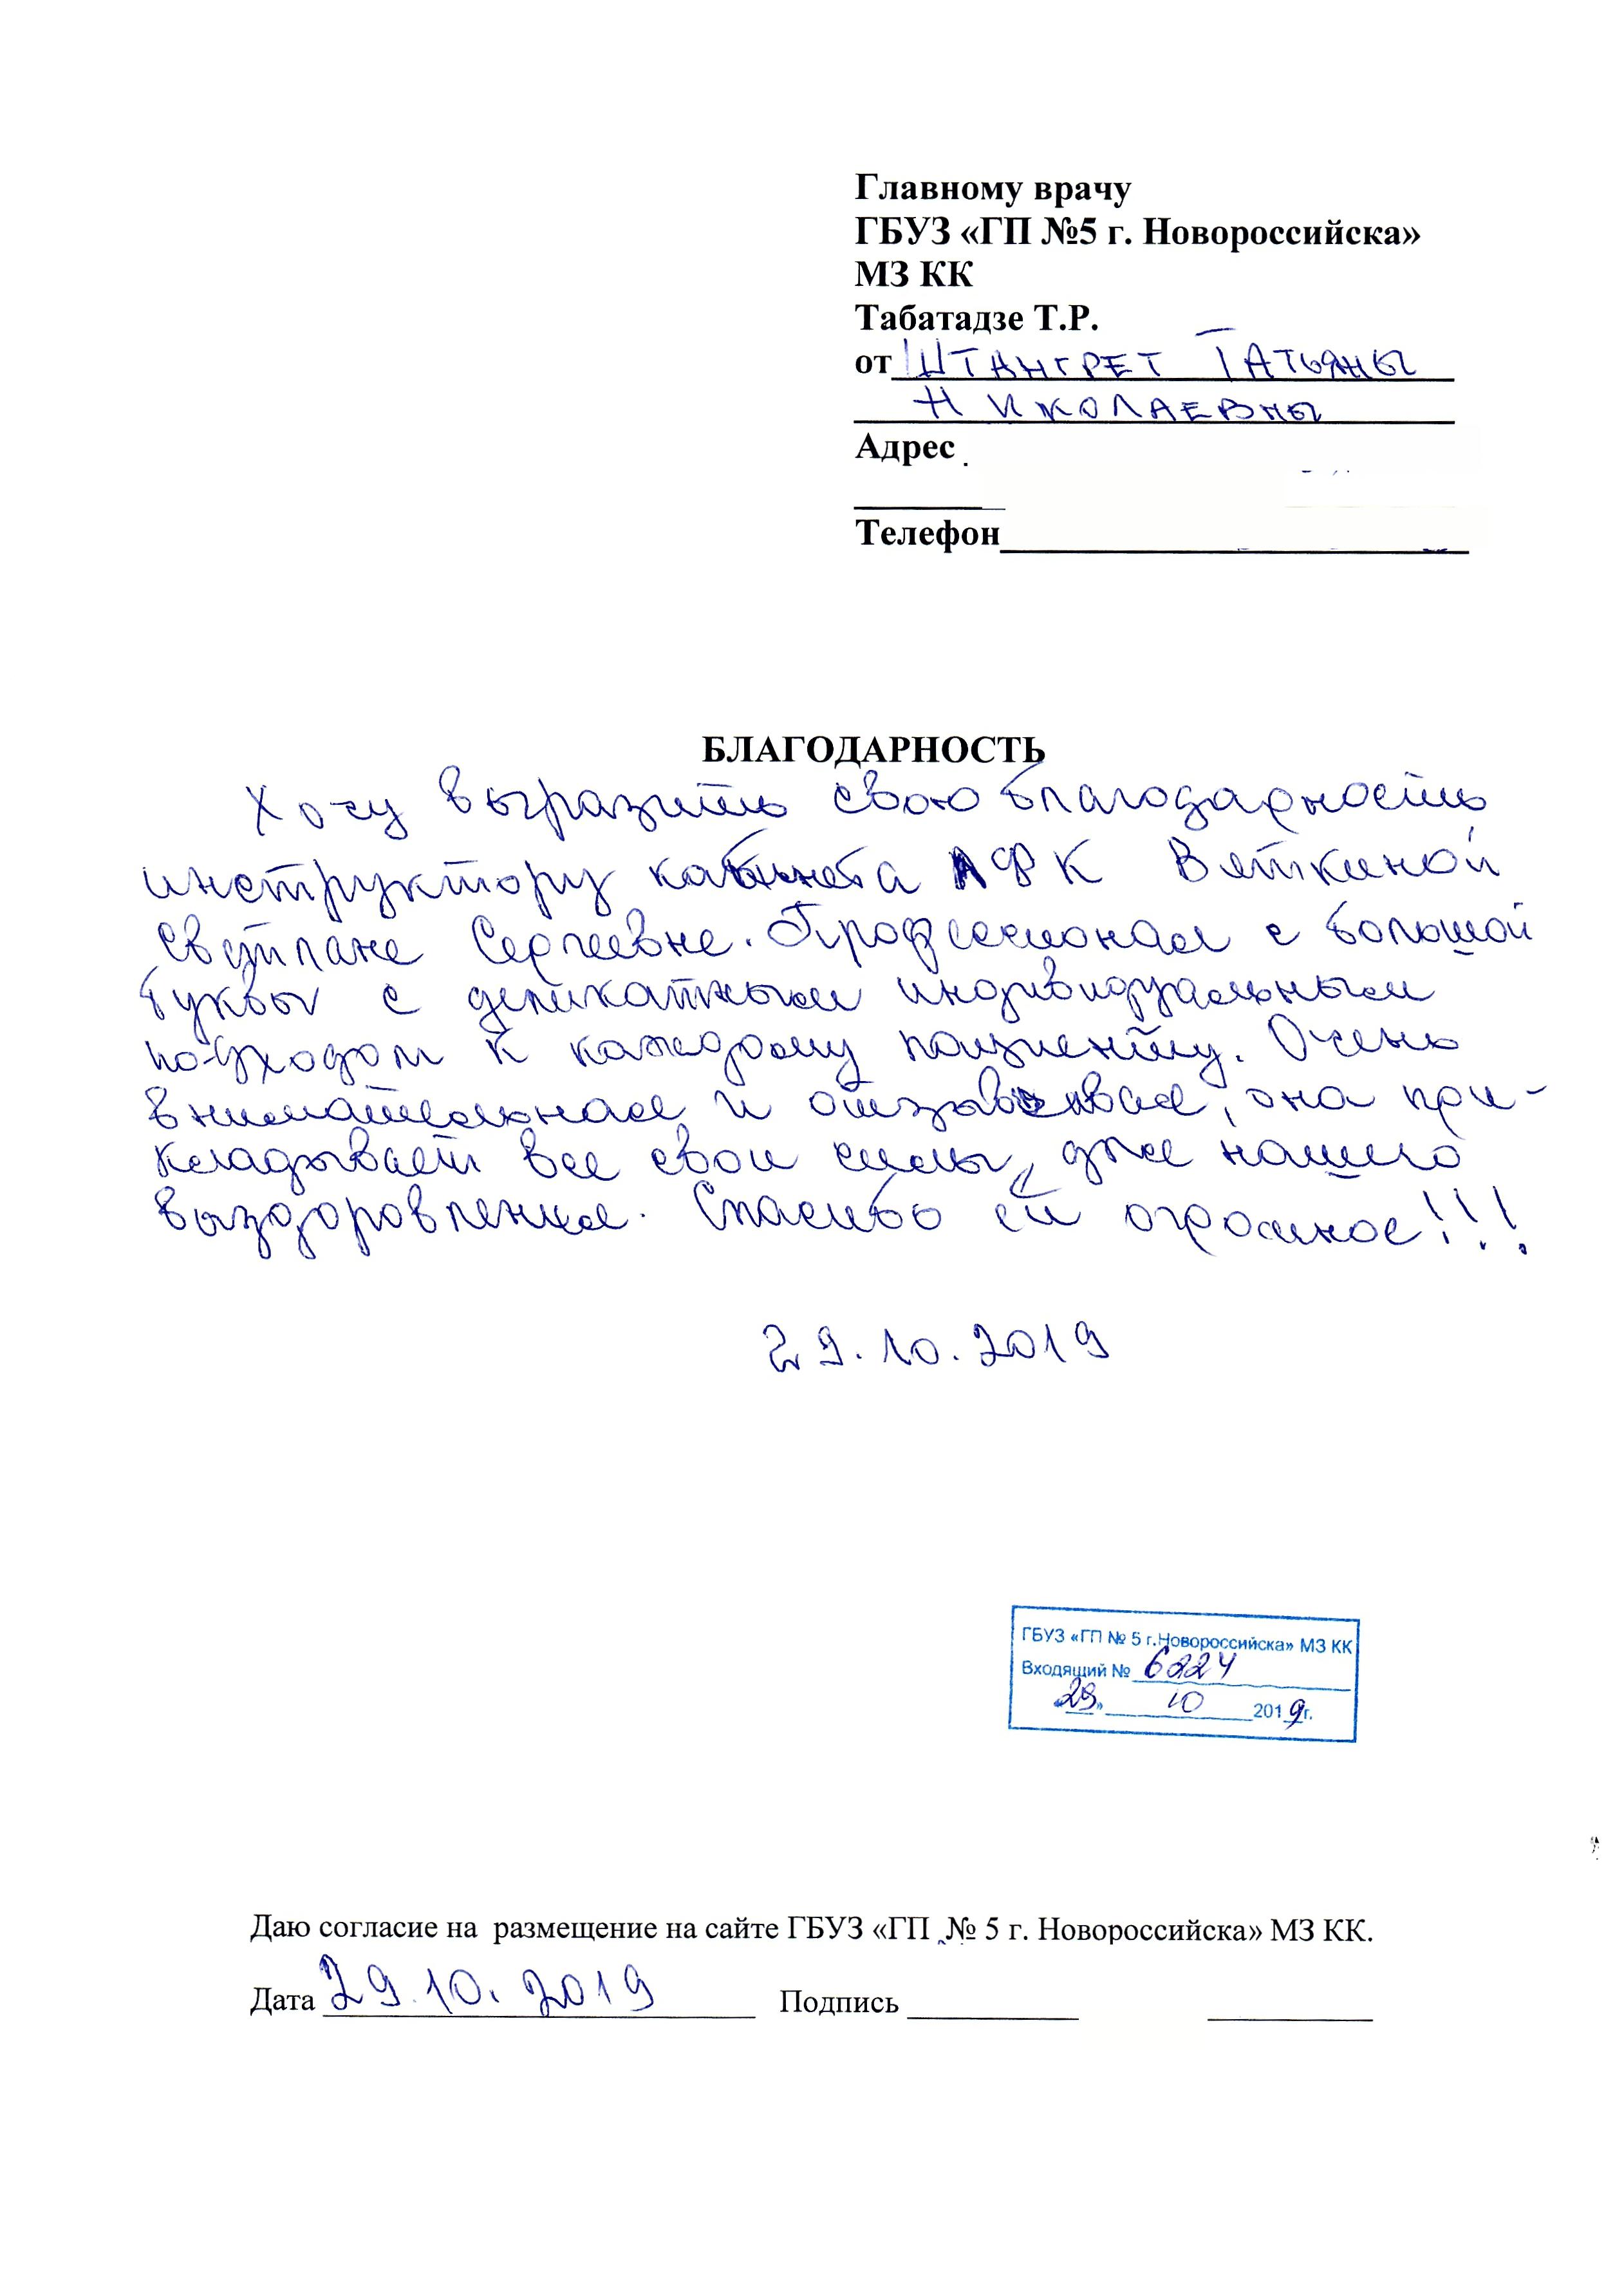 Главному врачу
ГБУЗ «ГП №5 г. Новороссийска»
МЗ КК
Табатадзе Т.Р.
от Штангрет Татьяны
Николаевны
Адрес
Телефон
БЛАГОДАРНОСТЬ
Хочу выразить свою благодарность
инструктору кабинета ЛФК Вяткиной
Светлане Сергеевне. Профессионал с большой
буквы с деликатным индивидуальным
подходом к каждому пациенту. Очень
внимательная и отзывчивая, она при-
кладывает все свои силы, для нашего
выздоровления. Спасибо ей огромное!!!
29.10.2019
ГБУЗ «ГП № 5 г.Новороссийска» МЗ КК
Входящий № 6224
«29» 10 2019г.
Даю согласие на размещение на сайте ГБУЗ «ГП № 5 г. Новороссийска» МЗ КК.
Дата 29.10.2019 Подпись